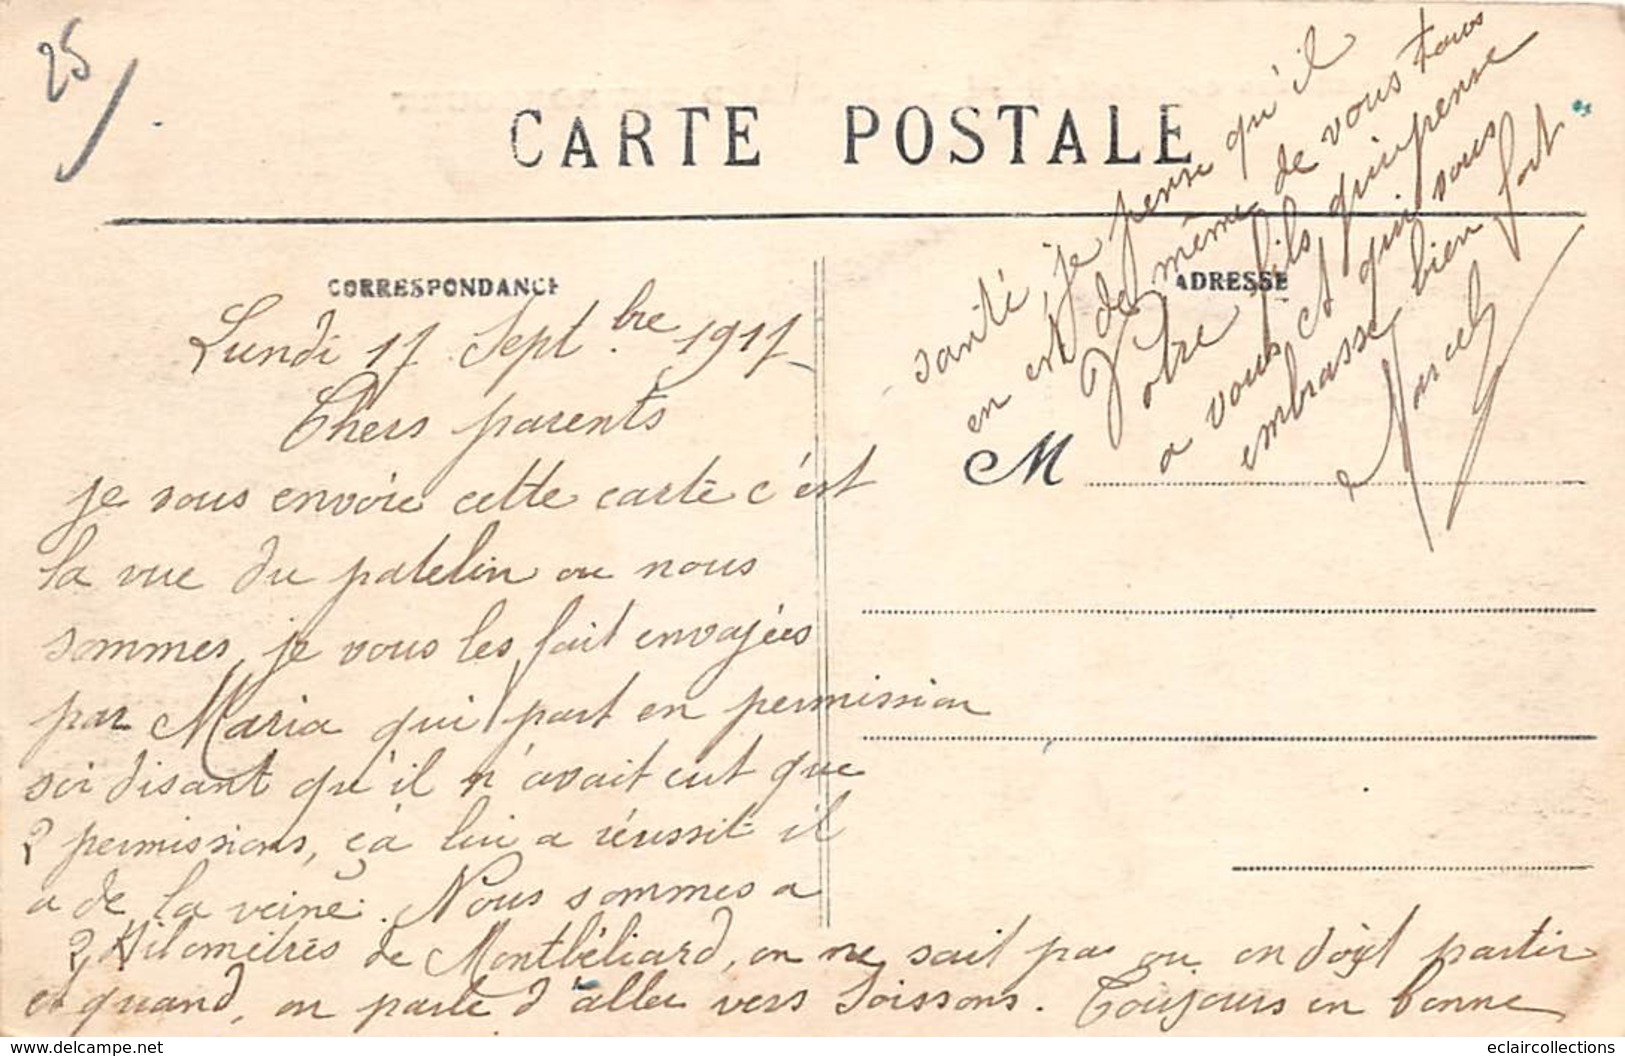 25
CARTE POSTALE
CORRESPONDANCE
ADRESSE
Lundi 17 Sept.bre 1917
Chers parents
je vous envoie cette carte c'est
la vue du patelin ou nous
sommes, je vous les fait envoyées
par Maria qui part en permission
soi disant qu'il n'avait eut que
2 permissions, ça lui a réussit il
a de la veine. Nous sommes a
2 Kilomètres de Montbéliard, on ne sait pas ou on doit partir
et quand, on parle d'aller vers Soissons. Toujours en bonne
santé je pense qu'il
en est de même de vous tous
Votre fils qui pense
a vous et qui vous
embrasse bien fort
Marcel
M
www.delcampe.net
eclaircollections